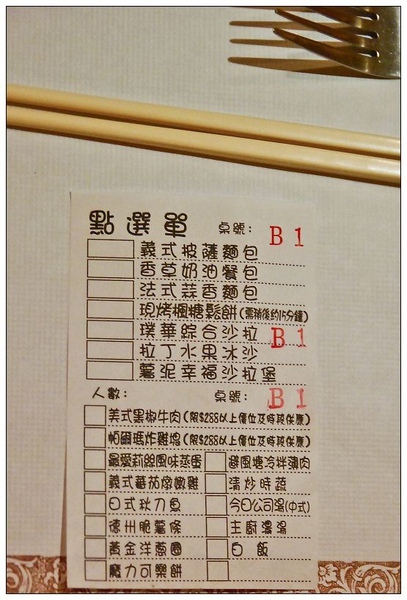 點選單 桌號: B1
義式披薩麵包
香草奶油餐包
法式蒜香麵包
現烤楓糖鬆餅(需稍後約15分鐘)
璞華綜合沙拉 B1
拉丁水果冰沙
薯泥幸福沙拉堡
人數: 桌號: B1
美式黑椒牛肉(限$288以上價位及時段供應)
帕爾瑪炸雞塢(限$288以上價位及時段供應)
愛麗絲風味蒸蛋 避風塘冷拌滷肉
義式蕃茄燉嫩雞 清炒時蔬
日式秋刀魚 今日公司湯(中式)
德州脆薯條 主廚濃湯
黃金洋蔥圈 白飯
魔力可樂餅